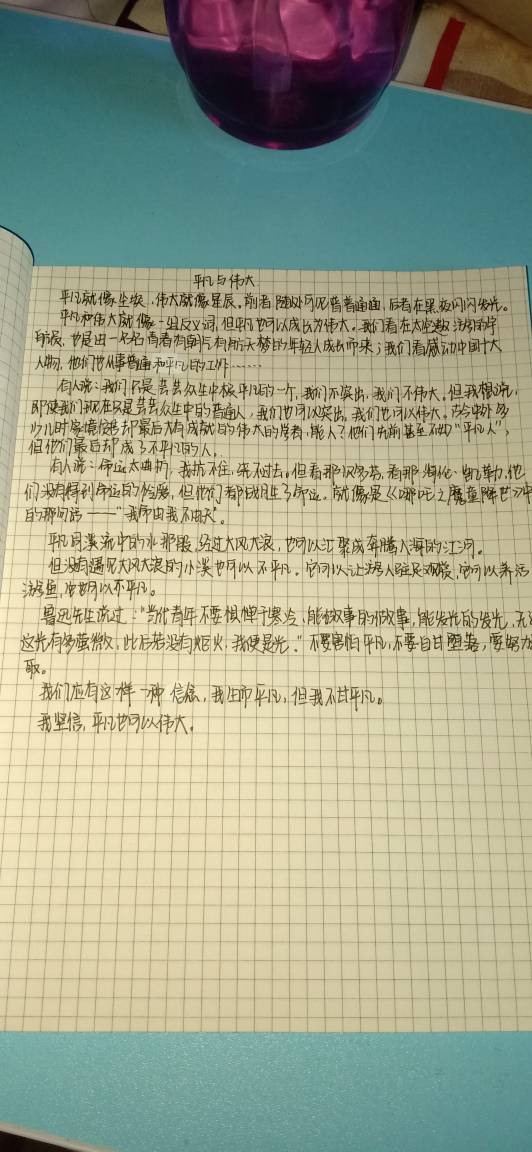 平凡与伟大
平凡就像尘埃,伟大就像星辰。前者随处可见普普通通,后者在黑夜闪闪发光。
平凡和伟大就像一组反义词,但平凡也可以成长为伟大。我们看在太空数活动的宇
航员,也是由一名名青春有朝与有航天梦的年轻人成长而来;我们看感动中国十大
人物,他们也从事普通和平凡的工作……
有人说:我们只是芸芸众生中极平凡的一个,我们不突出,我们不伟大。但我想说,
即使我们现在只是芸芸众生中的普通人,我们也可以突出。我们也可以伟大。古今中外多
少儿时家境 却最后大有成就的伟大的学者,能人?他们先前甚至不如"平凡人",
但他们最后却成了不平凡的人。
有人说:命运太曲折,我抗不住,绕不过去。但看那贝多芬,看那海伦·凯勒,他
们没有得到命运的怜爱,但他们都战胜了命运。就像是《哪吒之魔童降世》中
的那句话——"我命由我不由天"。
平凡同溪流中的水那般,经过大风大浪,也可以汇聚成奔腾入海的江河。
但没有遇见大风大浪的小溪也可以不平凡。它可以让游人驻足观赏,它可以养活
游鱼,它也可以不平凡。
鲁迅先生说过:"当代青年不要惧惮于寒冷,能做事的做事,能发光的发光,无论
这光有多萤微,此后若没有炬火,我便是光。"不要害怕平凡,不要自甘堕落,要努力
取。
我们应有这样一种信念,我生而平凡,但我不甘平凡。
我坚信,平凡也可以伟大。